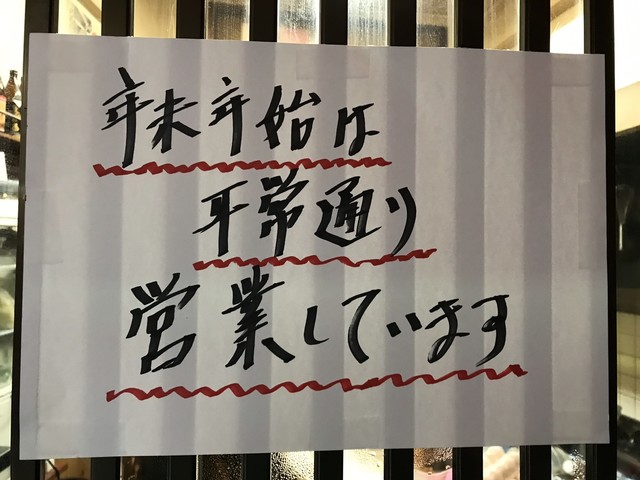 年末年始は
平常通り
営業しています